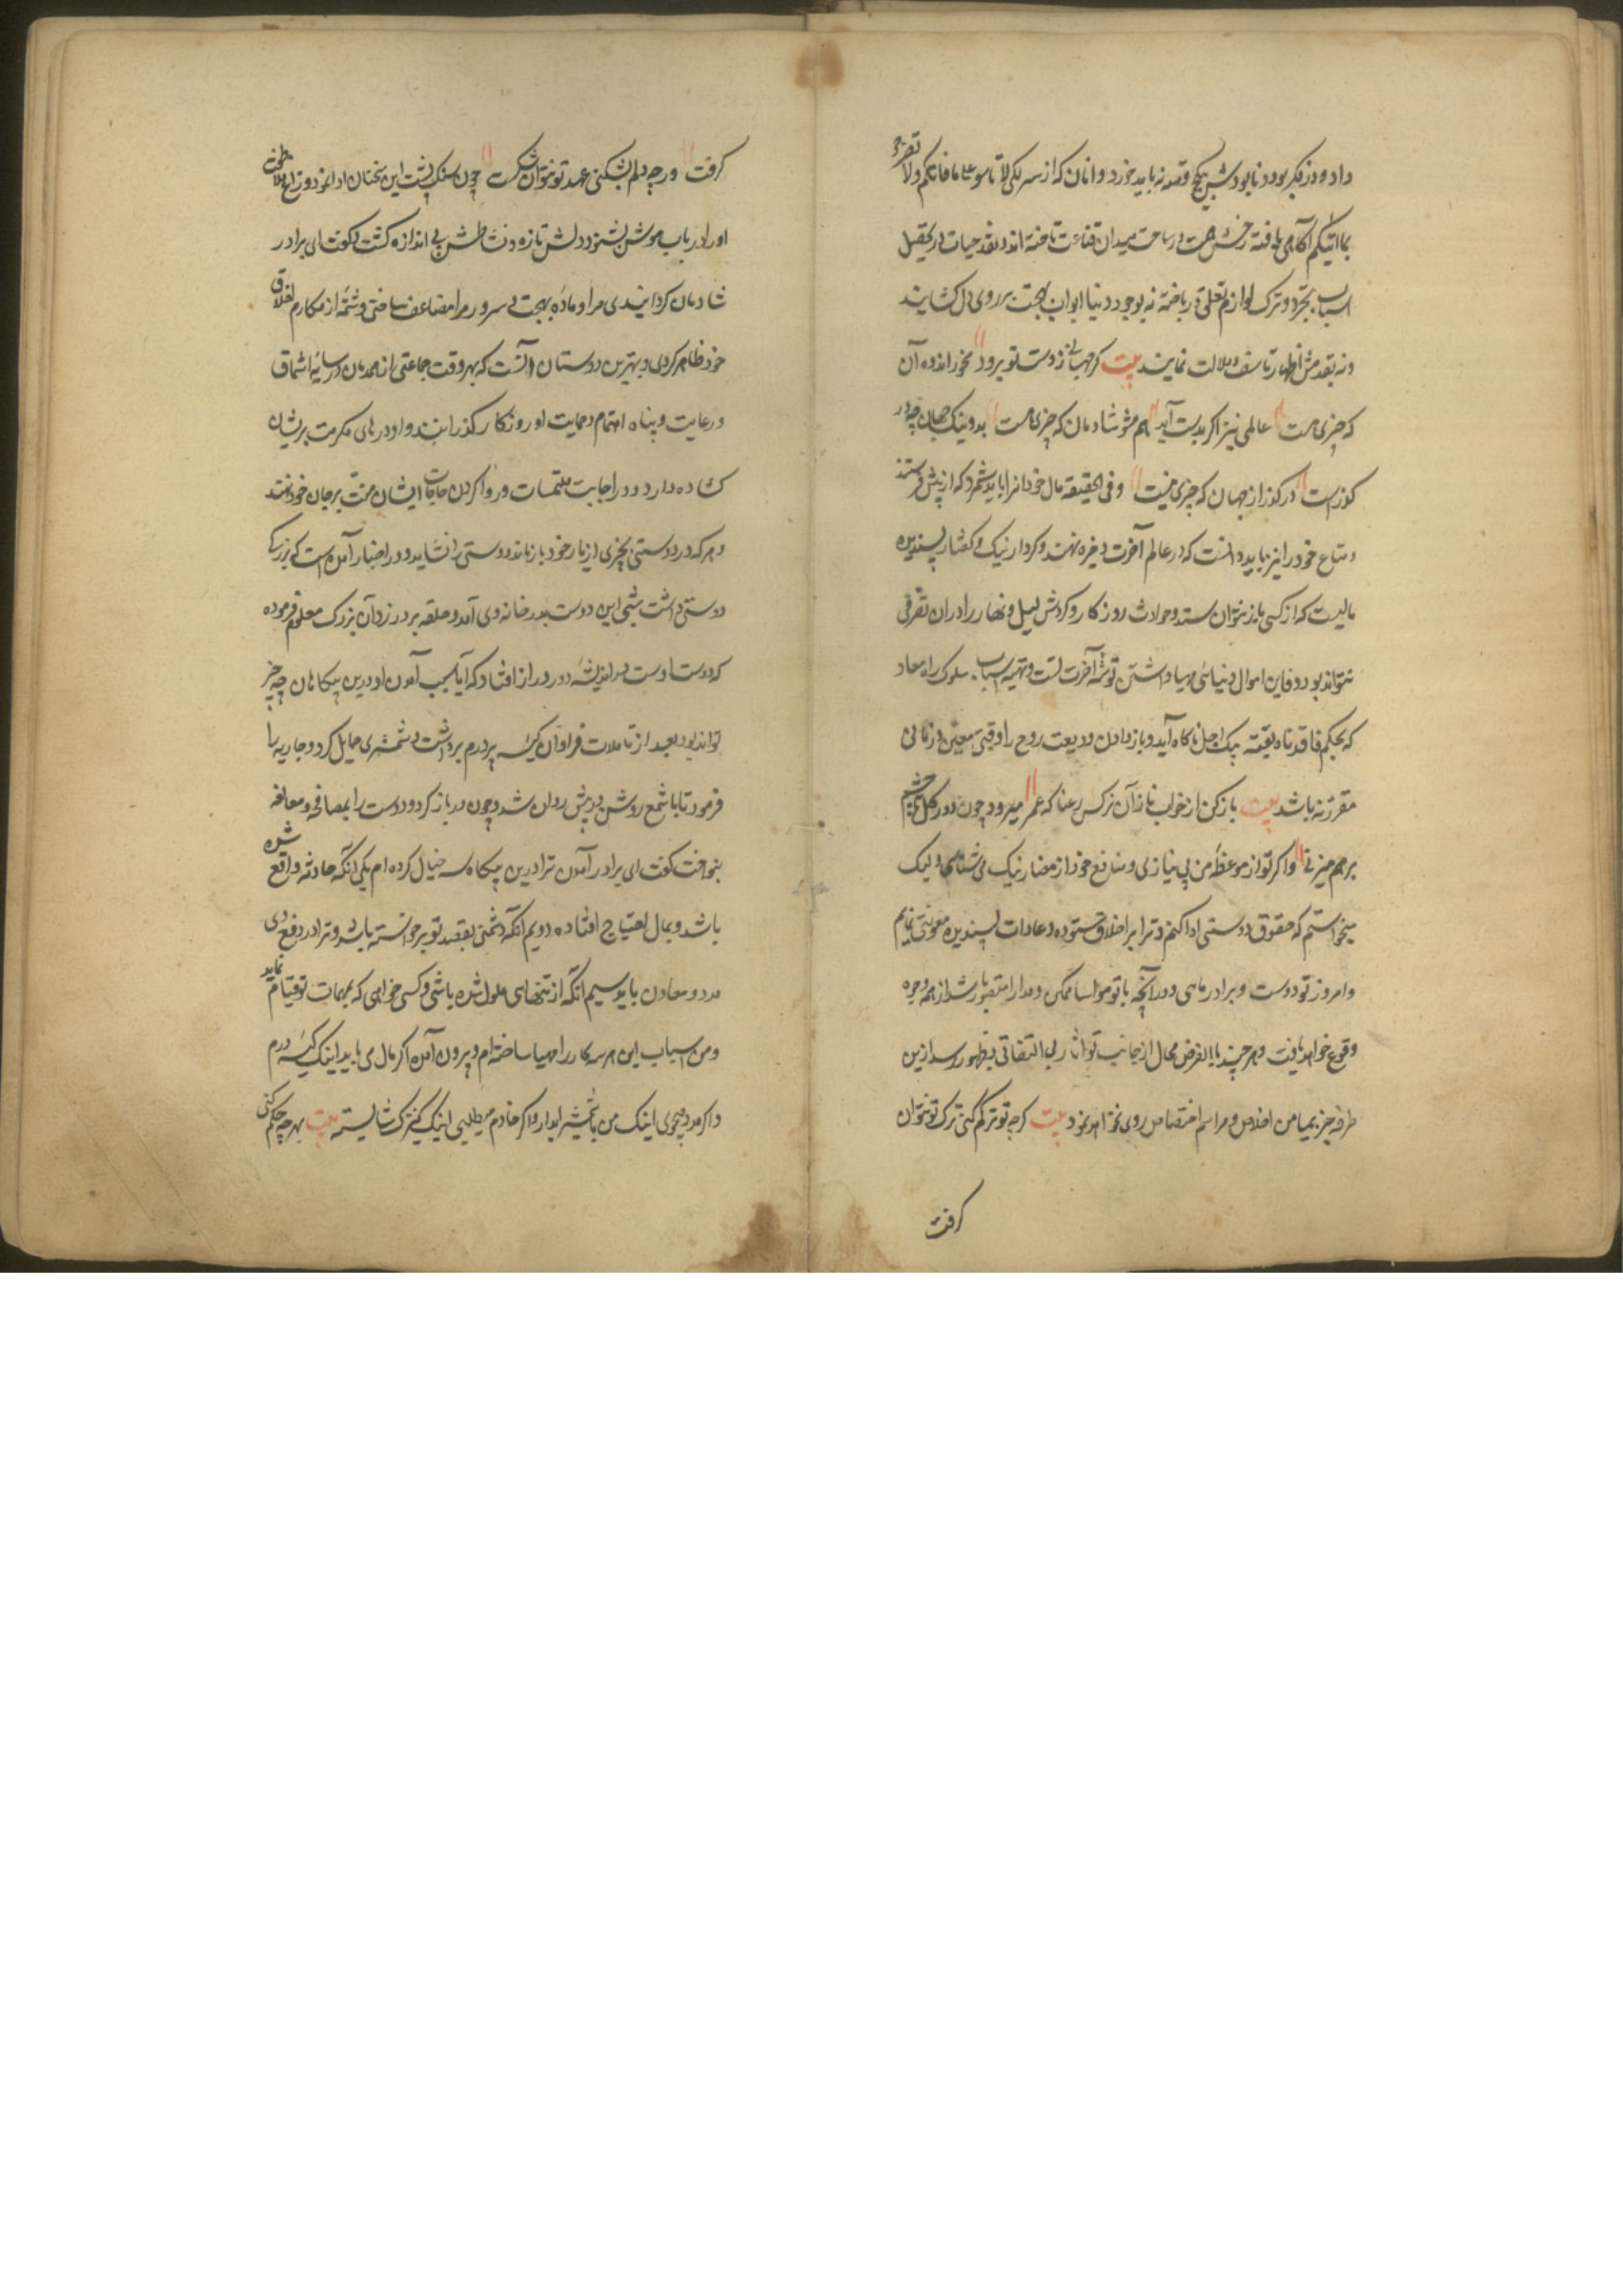 داد و در فکر بود و نابود بیش هیچ وقعه نباید خورد و انان که از سر لکیلا تاسوا علی ما فاتکم ولا تفرحوا
بما اتیکم آکاهی یافته رخش همت در ساحت میدان قناعت تاخته اند و نقد حیات در تحصیل
اسباب تجرد و ترک لوازم تعلق در باخته نه بوجود دنیا ابواب بهجت بر روی دل کشایند
و نه بفقدش اظهار تاسف و ملالت نمایند بیت کر جهانی ز دست تو برود مخور اندوه آن
که چیزی نیست عالمی نیز اکر بدست آید هم مشو شادمان که چیزی نیست بد و نیک جهان چو در
کذرست در کذر از جهان که چیزی نیست و فی الحقیقه مال خود انرا باید شمرد که از پیش فرستند
و متاع خود را نیز باید دانست که در عالم آخرت ذخیره نهند و کردار نیک و کفتار پسندیده
مالیست که از کسی باز نتوان ستد و حوادث روزکار و کردش لیل و نهار را در ان تصرفی
نتواند بود و فاین اموال دنیاسی مهیا داشتن توشه آخرتست و تهیه اسباب سلوک راه معاد
که بحکم فاخذناه بغتة پیک اجل ناکاه آید و باز دادن ودیعت روح را وقتی معین و زمانی
مقرر نه باشد بیت باز کن از خواب ناز آن نرکس رعنا که عمر میرود چون دور کل تا چشم
بر هم میزنی و اکر تو از موعظه من بی نیازی و منافع خود از مضار نیک می شناسی ولیک
میخواستم که حقوق دوستی ادا کنم و ترا بر اخلاق ستوده و عادات پسندیده معونتی نمایم
و امروز تو دوست و برادر ماسی و در آنچه با تو مواسا ممکن و مدارا متصور باشد از همه وجوه
وقوع خواهد یافت و هر چند باالفرض محال از جانب تو اثار بی التفاتی بظهور رسد ازین
طرف جز بیامن اخلاص و مراسم اختصاص روی نخواهد نمود بیت کرچه تو ترکم کنی ترک تو نتوان
کرفت
کرفت ورچه دلم بشکنی عهد تو نتوان شکست چون سنک پشت این سخنان ادا نمود و زاغ ملاطفت
او را در باب موش بشنود دلش تازه و نشاطش بی اندازه کشت و کفت ای برادر
شادمان کردانیدی مرا و ماده بهجت و سرور مرا مضاعف ساختی و شمه از مکارم اخلاق
خود ظاهر کردی و بهترین دوستان آنست که بهر وقت جماعتی از همدمان در سایه اشفاق
و رعایت و پناه اهتمام و حمایت او روزکار کذرانند و او درهای مکرمت بر ایشان
کشاده دارد و در اجابت ملتمسات و روا کردن حاجات ایشان منت بر جان خود نهند
و هر که در دوستی بچیزی از یار خود باز ماند دوستی را نشاید و در اخبار آمده است که بزرکی
دوستی داشت شبی این دوست بدر خانه وی آمد و حلقه بر در زد آن بزرک معلوم فرموده
که دوست اوست در اندیشه دور و دراز افتاد که آیا سبب آمدن او درین بیکاهان چه چیز
تواند بود بعد از تاملات فراوان کیسه پر درم برداشت و شمشیری حمایل کرد و جاریه را
فرمود تا با شمع روشن در پیش روان شد و چون در باز کرد و دوست را بمصافحه و معانقه
بنواخت کفت ای برادر آمدن ترا درین بیکاه سه خیال کرده ام یکی آنکه حادثه واقع شده
باشد و بمال احتیاج افتاده دویم آنکه دشمنی بقصد تو برخواسته باشد و ترا در دفع وی
مدد و معاون باید سیم آنکه از تنهایی ملول شده باشی و کسی خواهی که بمهمات تو قیام نماید
و من اسباب این هر سه کار را مهیا ساخته ام و بیرون آمده اکر مال می باید اینک کیسه درم
و اکر مدد میجوی اینک من با شمشیر ابدار و اکر خادم میطلبی اینک کنیزک شایسته بیت بهر چه حکم کنی